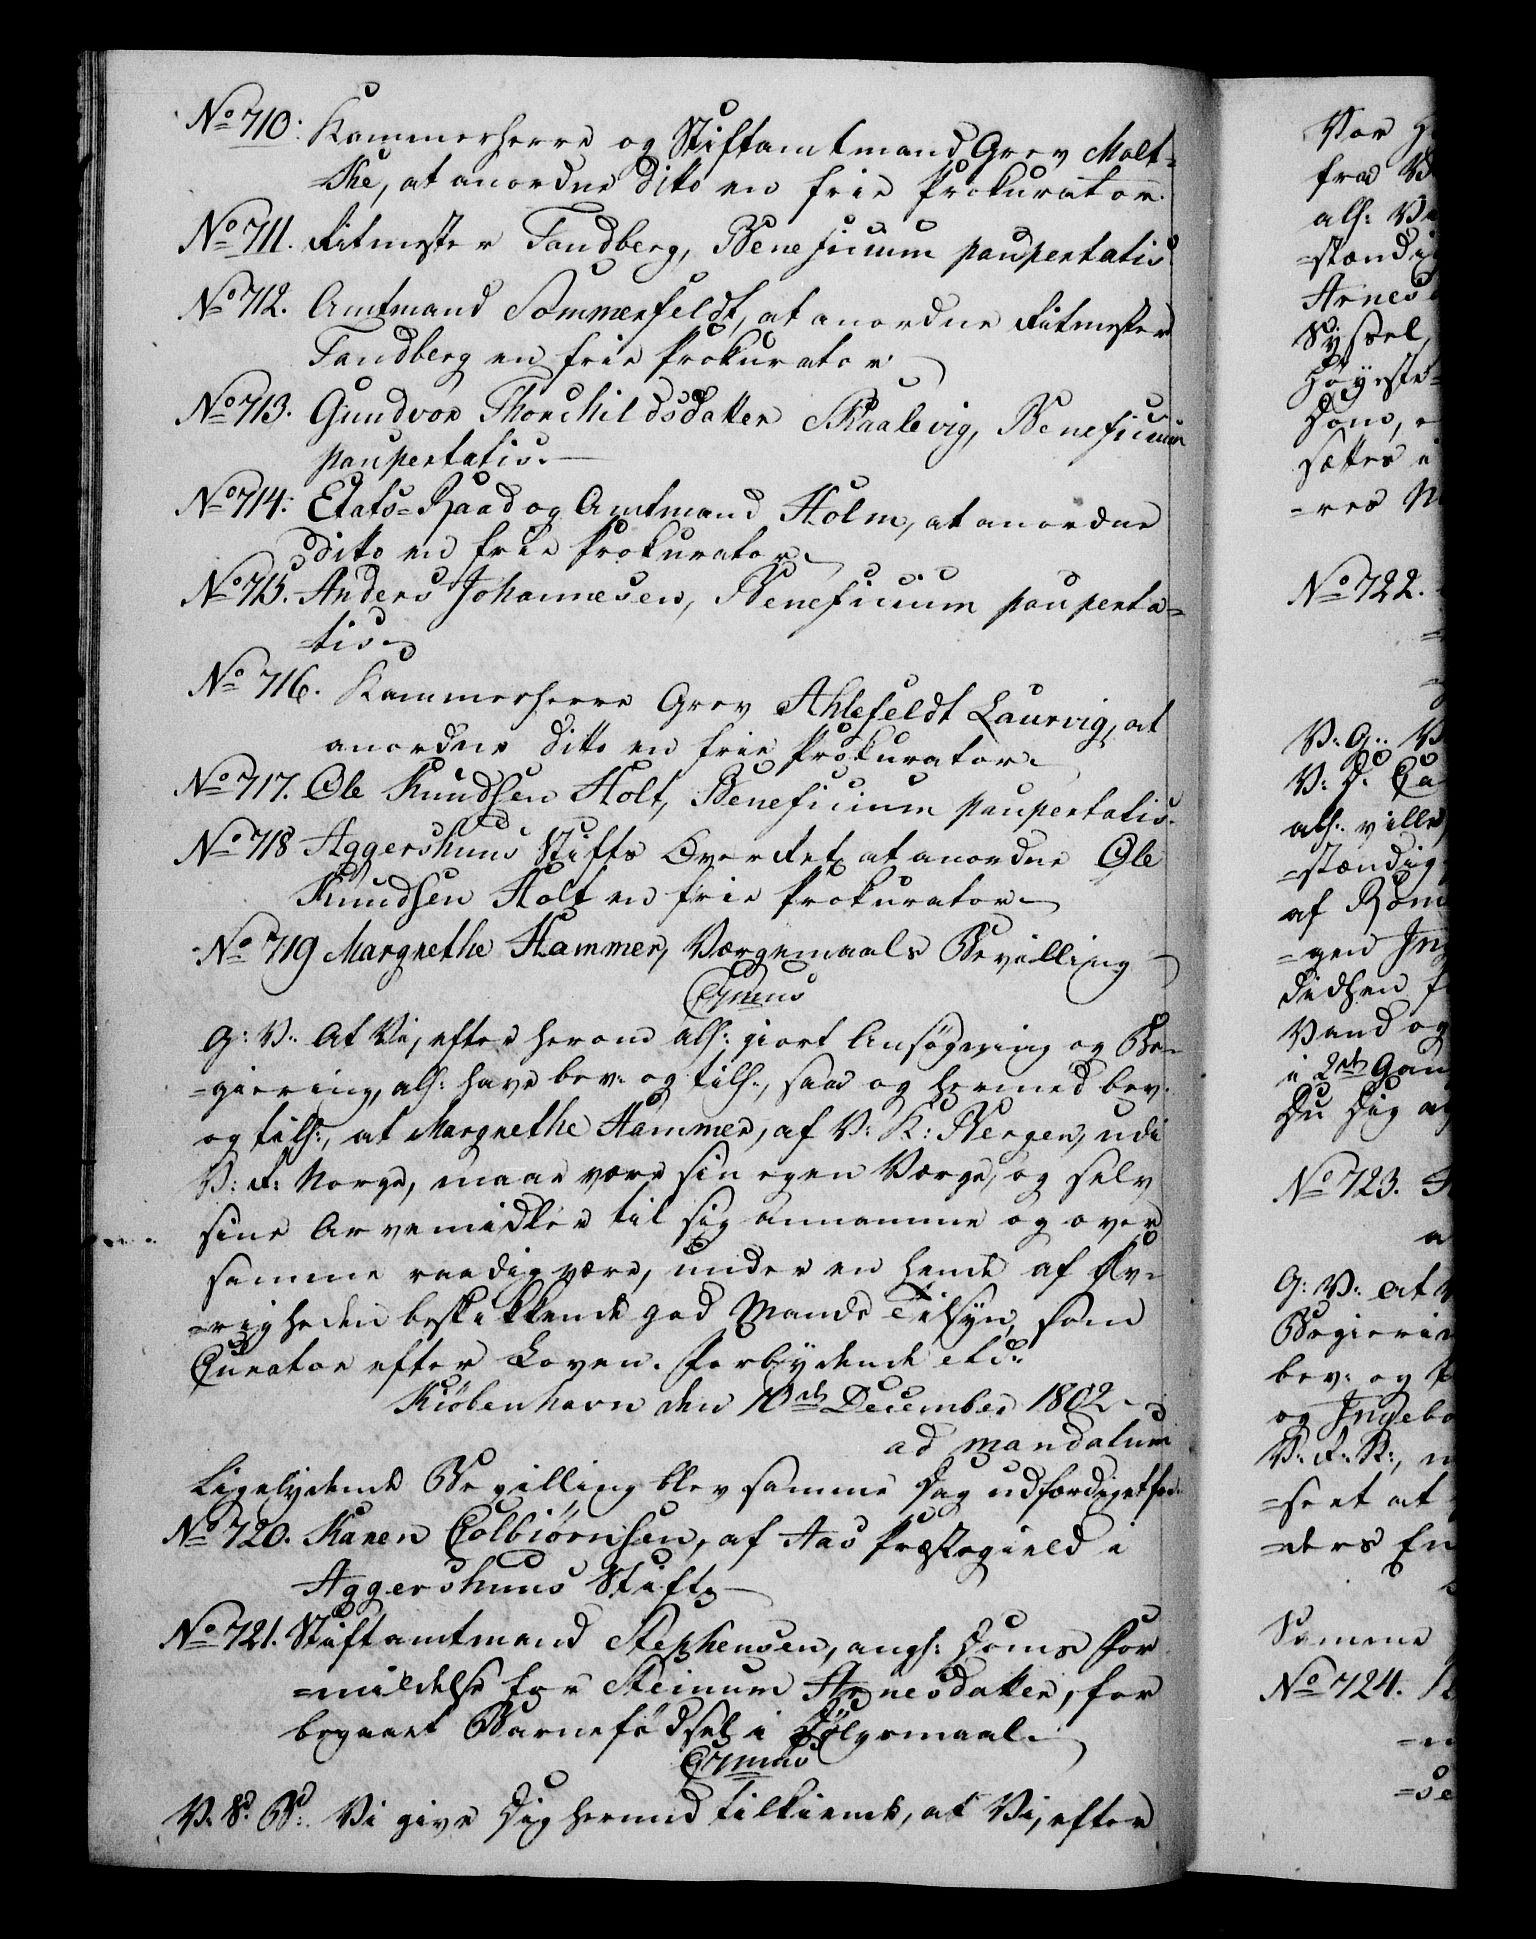 No 710: Kammerherre og Stiftamtmand Grev Molt-
=ke, at anordne dito en frie Prokurator.
No 711. Ritmester Tandberg, Beneficium paupertatis.
No 712. Amtmand Sommerfeldt, at anordne Ritmester
Tandberg en frie Prokurator.
No 713. Gundvor Thorchildsdatter Skaalevig, Beneficium
paupertatis.
No 714: Etats=Raad og Amtmand Holm, at anordne
dito en frie Prokurator
No 715. Anders Johannesen, Beneficium pauperta=
=tis
No 716. Kammerherre Grev Ahlefeldt Laurvig, at
anordne dito en frie Prokurator
No 717. Ole Knudsen Holt, Beneficium paupertatis.
No 718 Aggershuus Stifts Overret, at anordne Ole
Knudsen Holt en frie Prokurator
No 719 Margrethe Hammer, Værgemaals Bevilling
G: V: At Vi, efter herom als: giort Ansøgning og Be-
=giering, als: have bev: og tils:, saa og hermed bev:
og tils:, at Margrethe Hammer, af V: K: Bergen, udi
V: R: Norge, maae være sin egen Værge, og selv
sine Arvemidler til sig annamme og over
samme raadig være, under en hende af Øv-
=righeden beskikkende god Mands Tilsyn som
Curator efter Loven. Forbydende etc:
Kiøbenhavn den 10de December 1802
ad mandatum
Ligelydende Bevilling blev samme Dag udfærdiget for:
No 720. Karen Colbiørnsen, af Aas Præstegield i
Aggershuus Stift
No 721. Stiftamtmand Stephensen, ang: Doms For
=mildelse for Steinum Arnesdatter, for
begaaet Barnefødsel i Dølgsmaal.
V. S. B: Vi give Dig hermed tilkiende, at Vi, efter
Vor
fra
als:
=stændig
Arnes
Syssel,
Høyeste=
Dom,
sættes i
=res
No 722.
V: G:
V: D.
als: ville
=stændig
af
=gen
didhen
Vand og
i 2de
Du Dig
No 723.
G: V: At
Begierin
bev: og
og Ingebo
V: R:
=seet at
=ders
Samme
No 724.